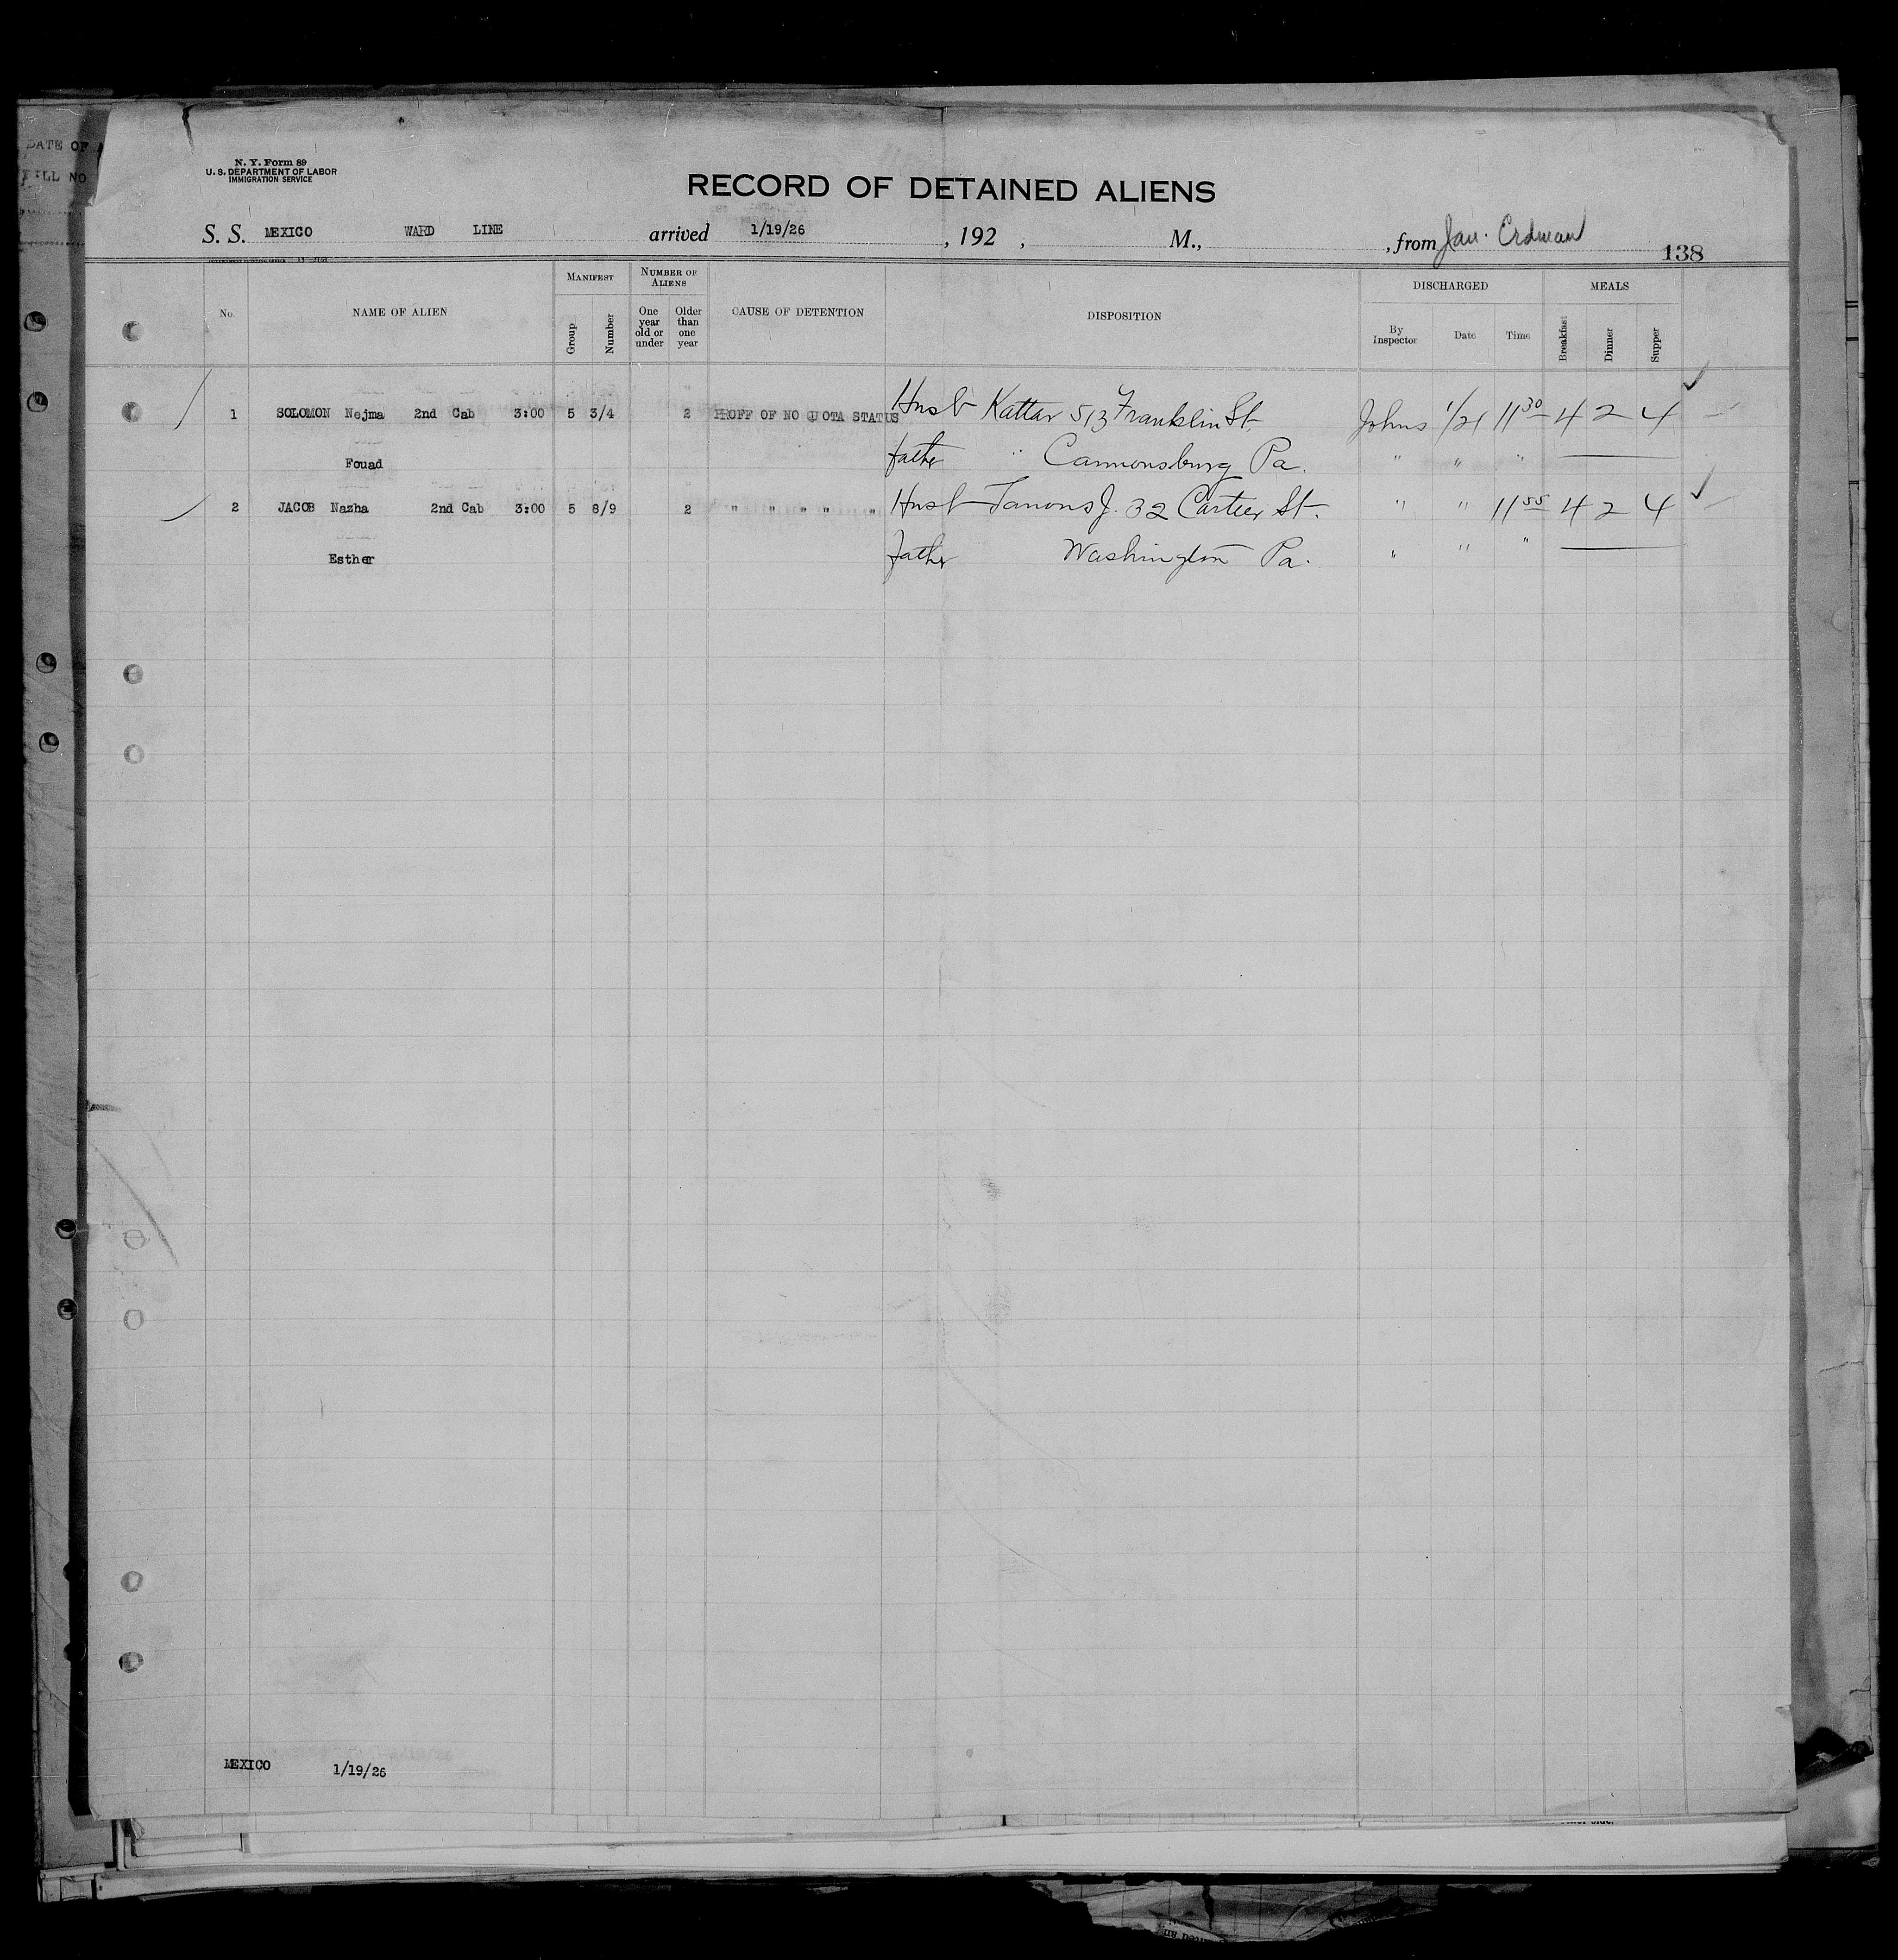 DATE OF
N. Y. Form 89
U. S. DEPARTMENT OF LABOR
IMMIGRATION SERVICE
RECORD OF DETAINED ALIENS
S. S. MEXICO WARD LINE arrived 1/19/26, 192 , M., , from Jan. Erdman
138
No. NAME OF ALIEN MANIFEST Group Number NUMBER OF ALIENS One year old or under Older than one year CAUSE OF DETENTION DISPOSITION DISCHARGED By Inspector Date Time MEALS Breakfast Dinner Supper
1 SOLOMON Nejma 2nd Cab 3:00 5 3/4 2 PROFF OF NO QUOTA STATUS Husb Kattar 513 Franklin St. Johns 1/21 11 30 4 2 4
Fouad father " Cannonsburg Pa. " " "
2 JACOB Nazha 2nd Cab 3:00 5 8/9 2 " " " " " Husb Tanous J. 32 Cartier St. " " 11 55 4 2 4
Esther father Washington Pa. " " "
MEXICO 1/19/26